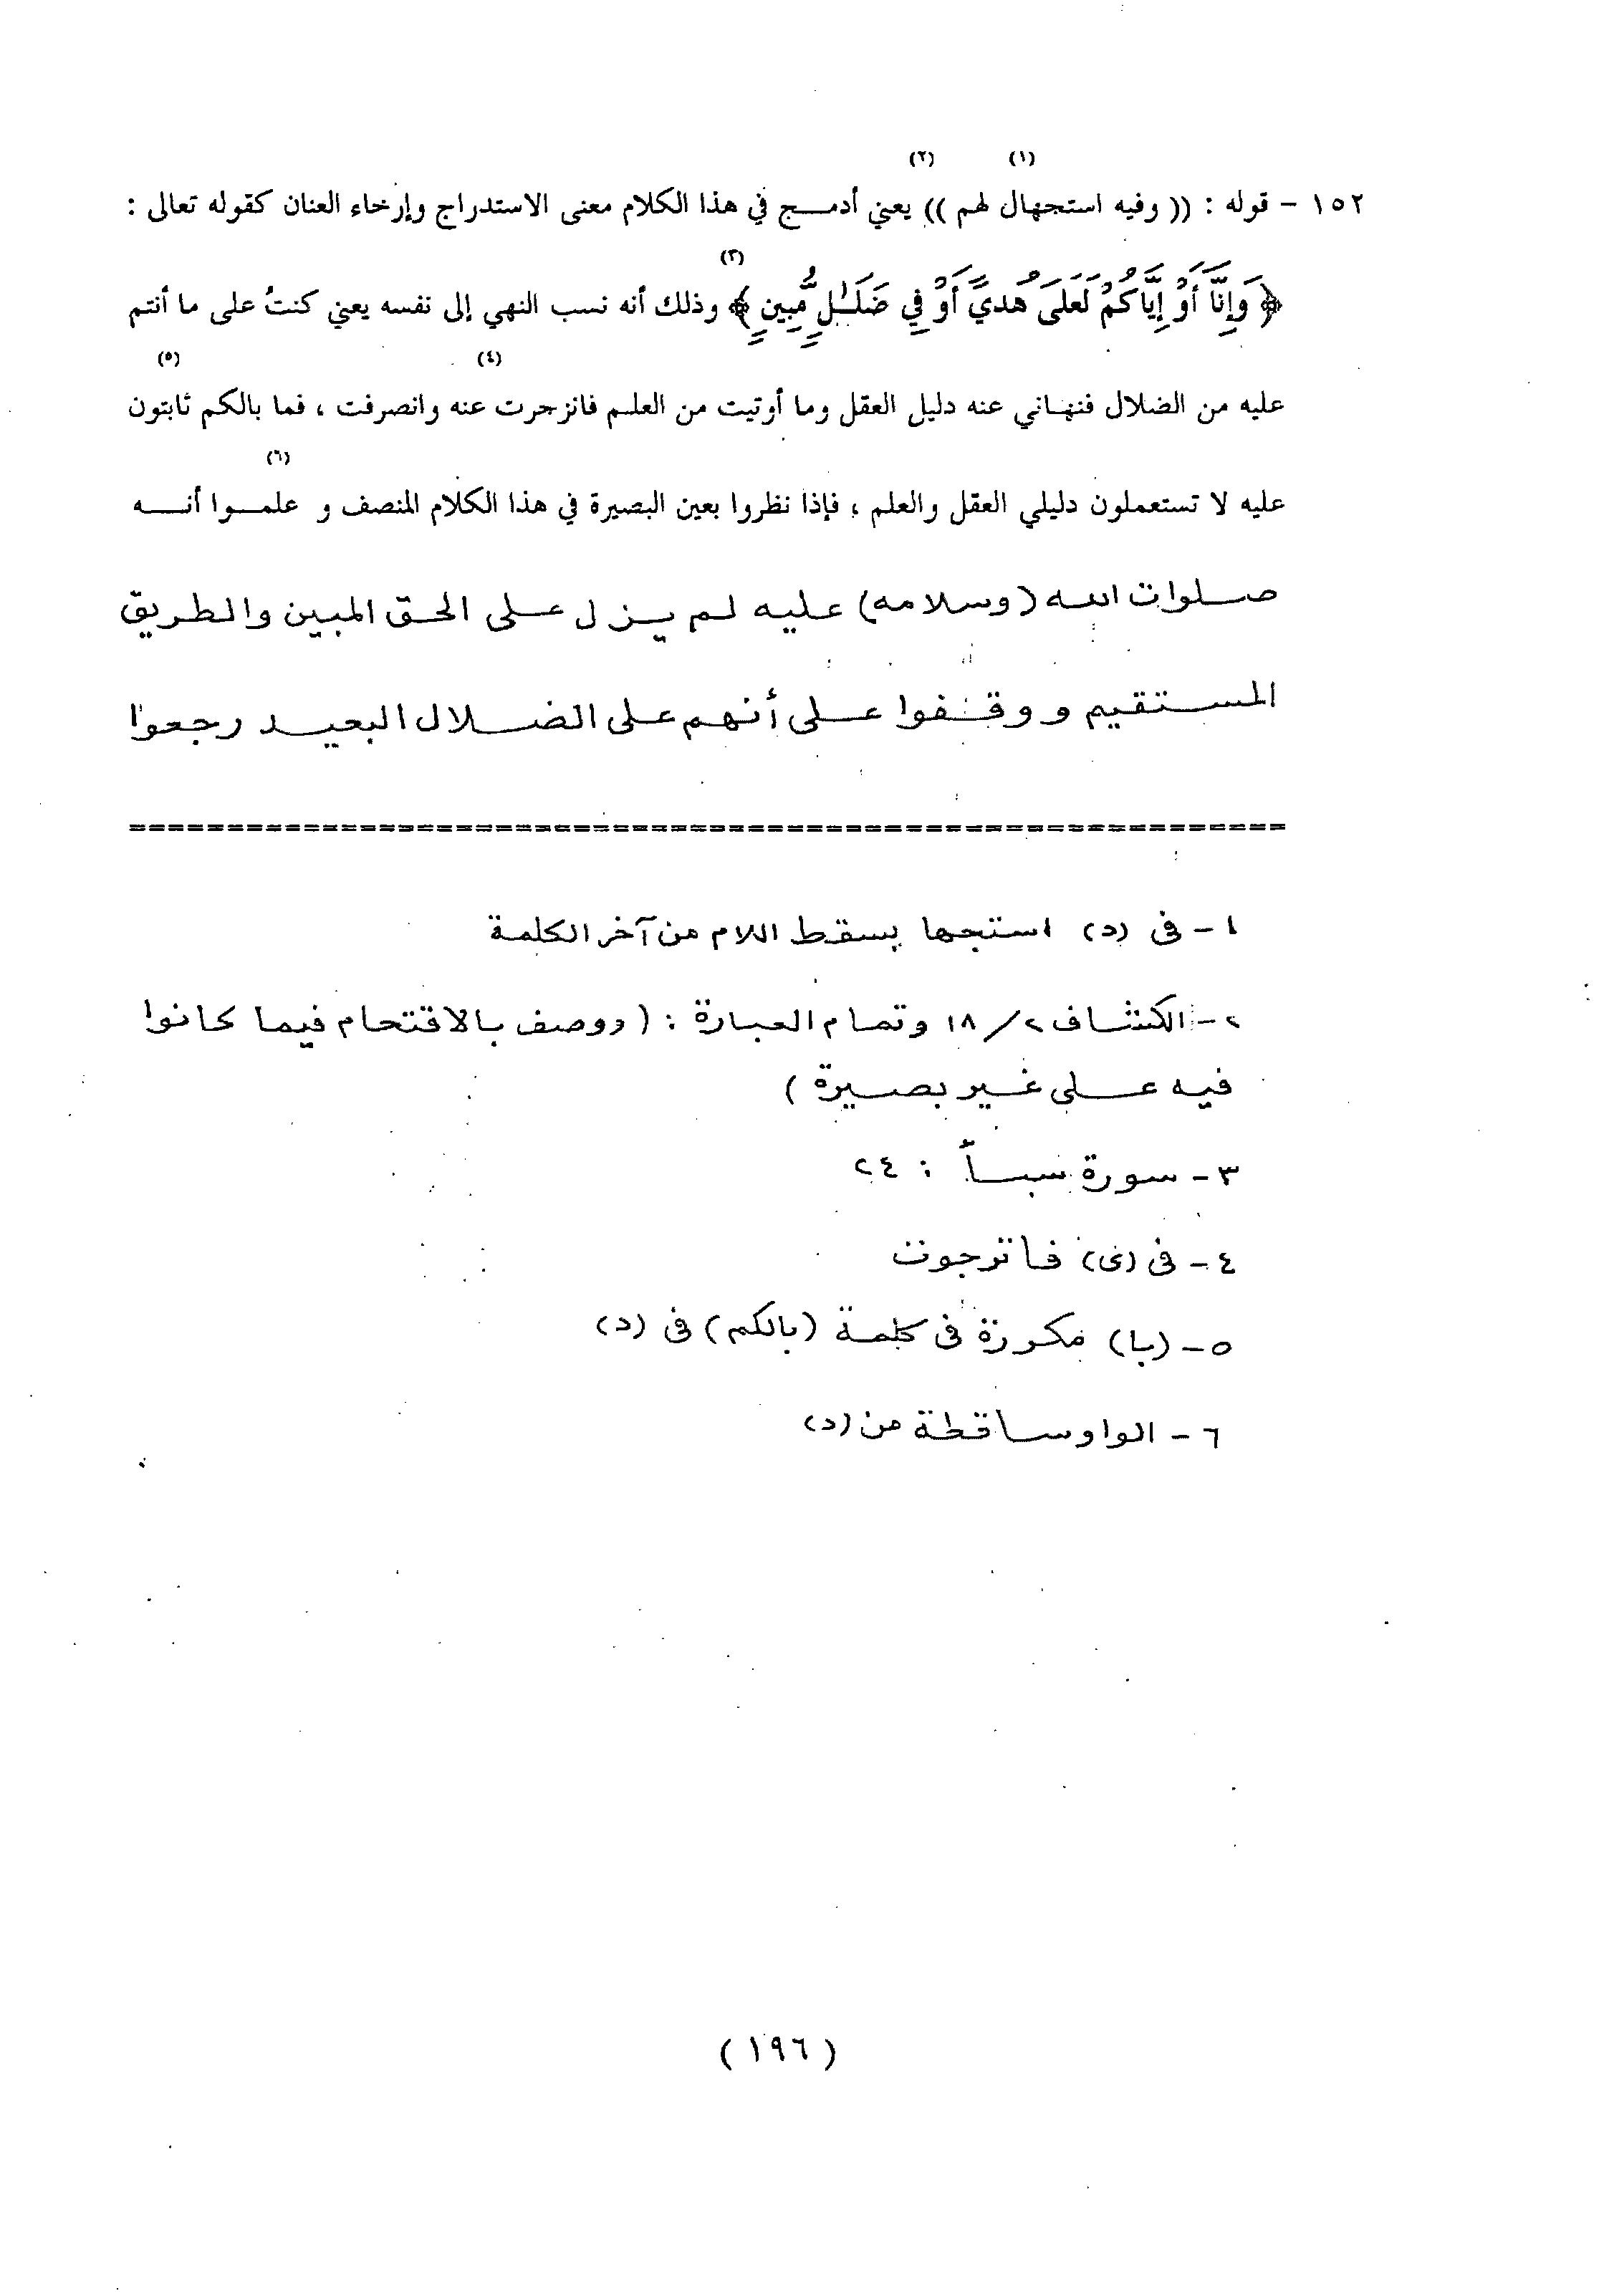 (١) (٢)
١٥٢ - قوله : (( وفيه استجهال لهم )) يعني أدمـــج في هذا الكلام معنى الاستدراج وإرخاء العنان كقوله تعالى :
(٣)
﴿ وَإِنَّا أَوْ إِيَّاكُمْ لَعَلَىٰ هُدىً أَوْ فِي ضَلَـٰلٍ مُّبِينٍ ﴾ وذلك أنه نسب النهي إلى نفسه يعني كنتُ على ما أنتم
(٤) (٥)
عليه من الضلال فنهـاني عنه دليل العقل وما أوتيت من العلم فانزجرت عنه وانصرفت ، فما بالكم ثابتون
(٦)
عليه لا تستعملون دليلي العقل والعلم ، فإذا نظروا بعين البصيرة في هذا الكلام المنصف و علمـــوا أنـــه
صـلوات الله (وسلامه) عليه لم يـزل على الحق المبين والطريق
المستقيم ووقفوا على أنهم على الضلال البعيد رجعوا
============================================================
١ - فى (د) استجها بسقط اللام من آخر الكلمة
٢ - الكشاف ٢ / ١٨ وتمام العبارة : ( ووصف بالاقتحام فيما كانوا
فيه على غير بصيرة )
٣ - سورة سبأ : ٢٤
٤ - فى (ى) فاترجوت
٥ - (با) مكررة فى كلمة (بالكم) فى (د)
٦ - الواو ساقطة من (د)
( ١٩٦ )